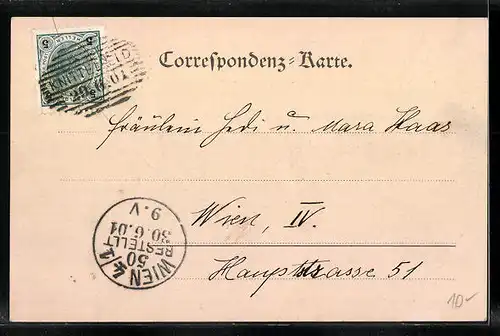 5 5
HELLER
Correspondenz-Karte.
Fräulein Hedi u. Mara Haas
Wien, IV.
Hauptstrasse 51
WIEN 4/1
50
BESTELLT
30.6.01
9.V
10-